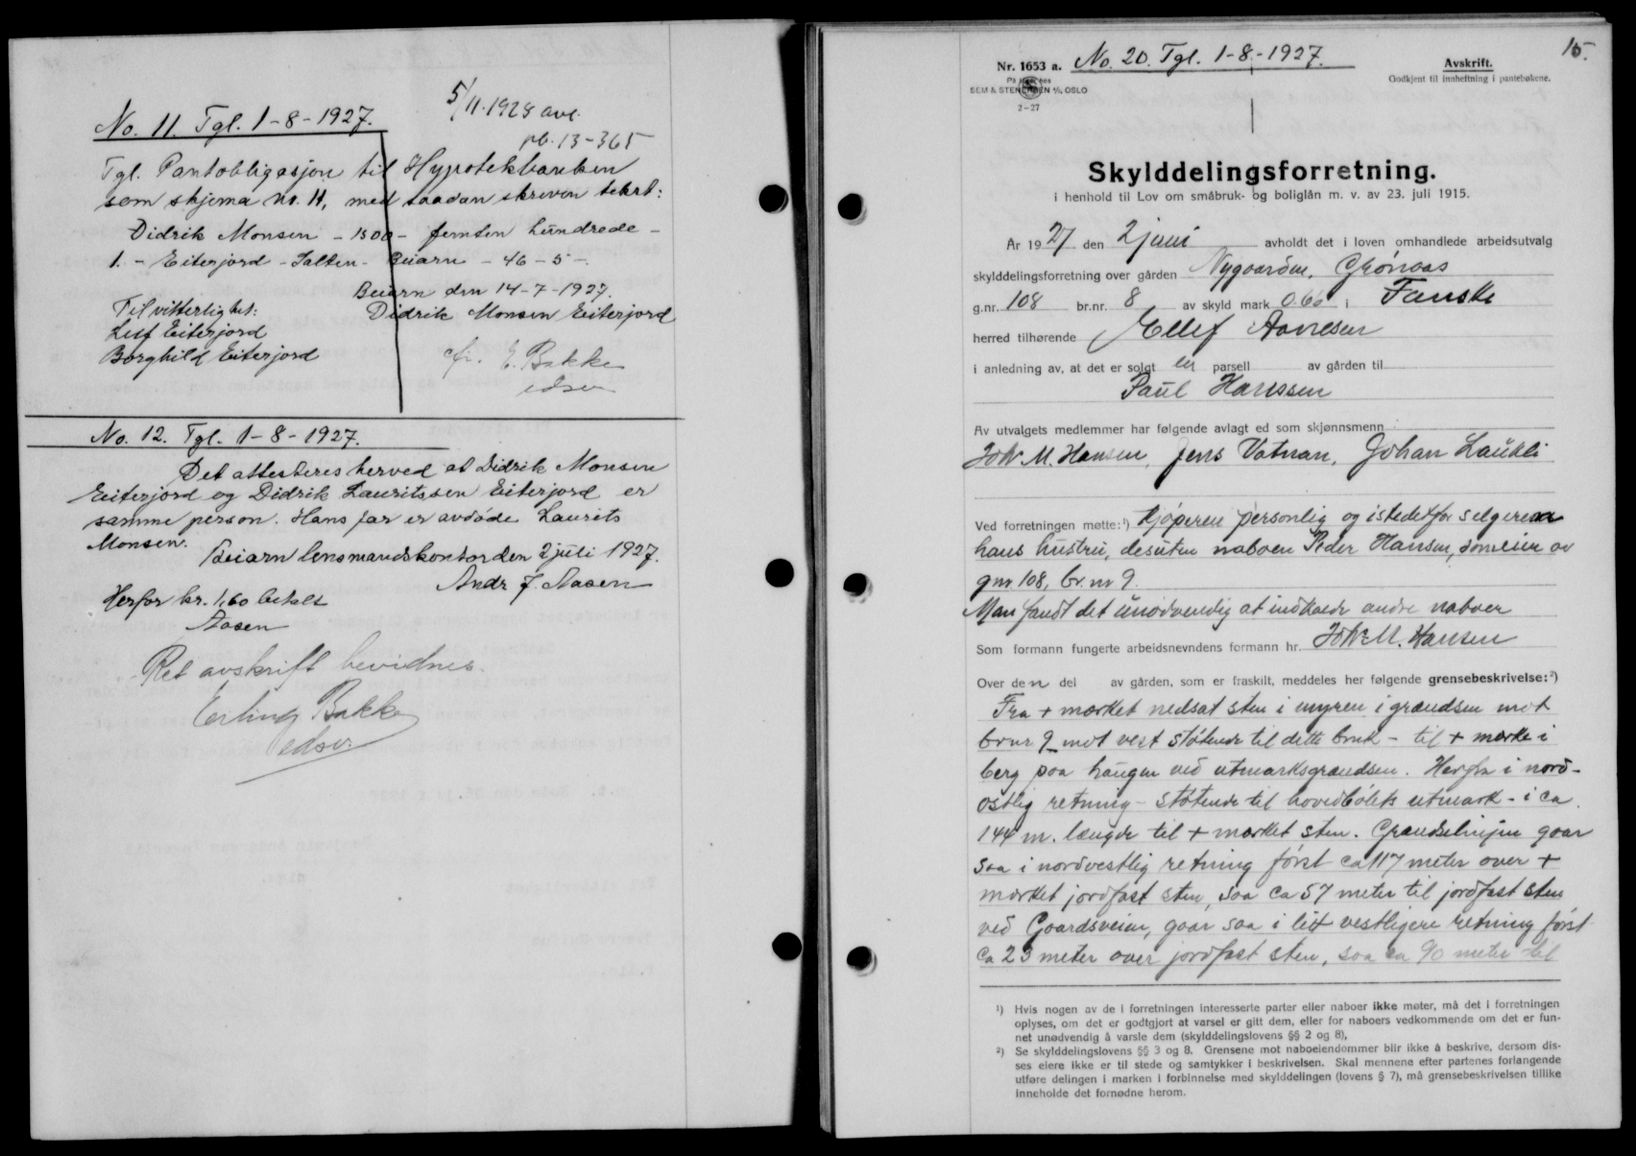 5/11-1928 avl.
pb. 13-365
No. 11. Tgl. 1-8-1927.
Tgl. Pantobligasjon til Hypotekbanken
som skjema nr. 11, med saadan skreven tekst:
Didrik Monsen - 1500 - femten hundrede -
1. - Eiterjord - Salten - Beiarn - 46 - 5 -.
Beiarn den 14-7-1927.
Til vitterlighet: Didrik Monsen Eiterjord
Leif Eiterjord
Borghild Eiterjord
E. Bakke
edsv
No. 12. Tgl. 1-8-1927.
Det attesteres herved at Didrik Monsen
Eiterjord og Didrik Lauritssen Eiterjord er
samme person. Hans far er avdöde Laurits
Monsen.
Beiarn lensmandskontor den 2 juli 1927.
Andr J. Aasen
Herfor kr. 1,60 betalt
Aasen
Ret avskrift bevidnes.
Erling Bakke
edsv
15.
Nr. 1653 a. No. 20. Tgl. 1-8-1927. Avskrift.
Godkjent til innheftning i pantebøkene.
SEM & STENERSEN A/S, OSLO
2-27
Skylddelingsforretning.
i henhold til Lov om småbruk- og boliglån m. v. av 23. juli 1915.
År 1927 den 2 juni avholdt det i loven omhandlede arbeidsutvalg
skylddelingsforretning over gården Nygaarden, Grönaas
g.nr. 108 br.nr. 8 av skyld mark 0.66 i Fauske
herred tilhørende Ellef Aanesen
i anledning av, at det er solgt en parsell av gården til
Paul Hanssen
Av utvalgets medlemmer har følgende avlagt ed som skjønnsmenn
Joh. M. Hansen, Jens Vatnan, Johan Laukli
Ved forretningen møtte:¹) Kjöperen personlig og istedetfor selgeren
hans hustru, desuten naboen Peder Hansen, som eier av
gnr 108, br. nr 9.
Man fandt det unödvendig at indkalde andre naboer
Som formann fungerte arbeidsnevndens formann hr. Joh. M. Hansen
Over den del av gården, som er fraskilt, meddeles her følgende grensebeskrivelse:²)
Fra + merket nedsat sten i myren i grændsen mot
brnr 9 mot vest stötende til dette bruk - til + merke i
berg paa haugen ved utmarksgrændsen. Herfra i nord-
ostlig retning - stötende til hovedbölets utmark - i ca.
144 m. længde til + merket sten. Grændselinjen gaar
saa i nordvestlig retning först ca 117 meter over +
merket jordfast sten, saa ca 57 meter til jordfast sten
ved Gaardsveien, gaar saa i litt vestligere retning först
ca 23 meter over jordfast sten, saa ca 90 meter til
¹) Hvis nogen av de i forretningen interesserte parter eller naboer ikke møter, må det i forretningen
oplyses, om det er godtgjort at varsel er gitt dem, eller for naboers vedkommende om det er fun-
net unødvendig å varsle dem (skylddelingslovens §§ 2 og 8).
²) Se skylddelingslovens §§ 3 og 8. Grensene mot naboeiendommer blir ikke å beskrive, dersom dis-
ses eiere ikke er til stede og samtykker i beskrivelsen. Skal mennene efter partenes forlangende
utføre delingen i marken i forbinnelse med skylddelingen (lovens § 7), må grensebeskrivelsen tillike
inneholde det fornødne herom.